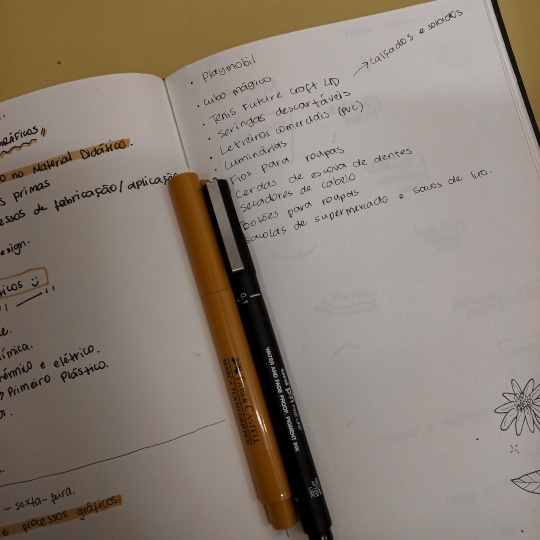 GRÁFICOS
no Material Didático.
s primas
essos de fabricação/aplicação
esign.
ticos
e.
ímica.
érmico e elétrico.
Primeiro Plástico.
- sexta-feira.
e processos gráficos.
• Playmobil
• cubo mágico
• Tenis Future Craft
→ calçados e solados
• Seringas descartáveis
• Letreiros comerciais (PVC)
• Luminárias
Fios para roupas
Cerdas de escova de dentes
Secadores de cabelo
Botões para roupas
Sacolas de supermercado e sacos de lixo.
FABER-CASTELL
0.1
uni PIN FINE LINE
WATER AND FADE PROOF, PIGMENT INK